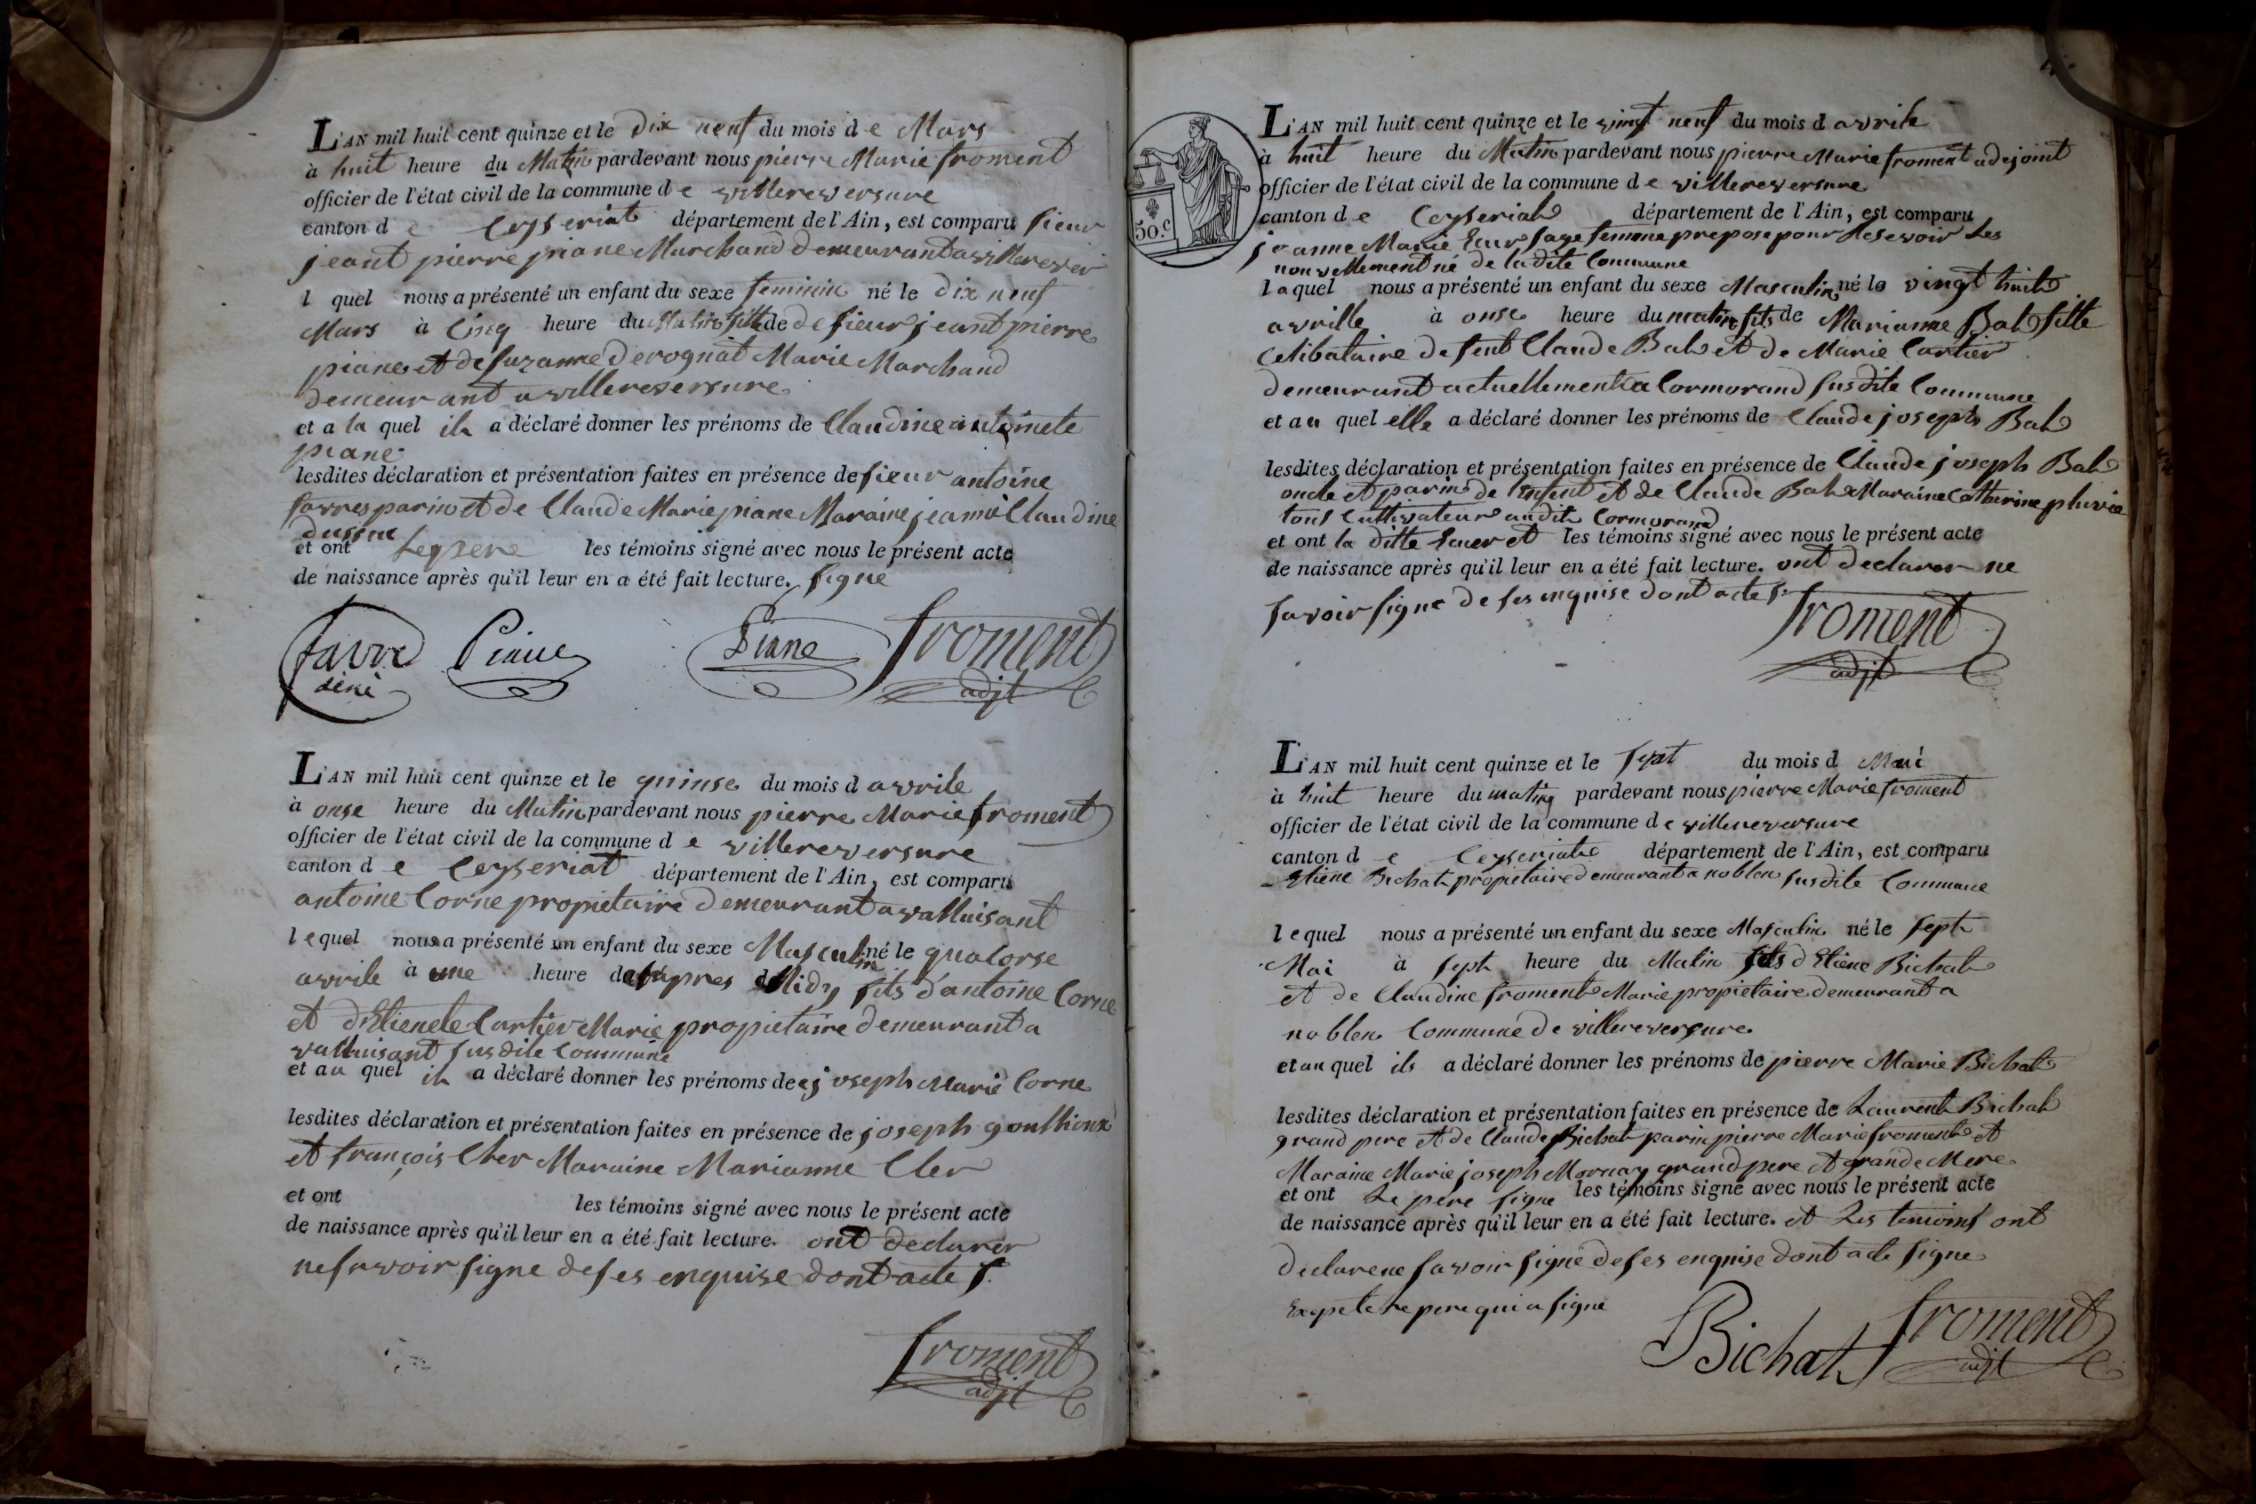 L'AN mil huit cent quinze et le Dix neuf du mois d e Mars
à huit heure du Matin pardevant nous pierre Marie froment
officier de l'état civil de la commune d e villereversure
canton d e Ceyseriat département de l'Ain, est comparu sieur
jeant pierre piane Marchand demeurant a villerever
l quel nous a présenté un enfant du sexe feminin né le dix neuf
Mars à Cinq heure du Matin fille de de sieur jeant pierre
piane et de suzanne derognat Marie Marchand
demeurant a villereversure
et a la quel il a déclaré donner les prénoms de Claudine antoinete
piane
lesdites déclaration et présentation faites en présence de sieur antoine
favre parin et de Claude Marie piane Maraine jeanne Claudine
et ont le pere les témoins signé avec nous le présent acte
de naissance après qu'il leur en a été fait lecture. signe
favre Piane Piane froment
adjt
L'AN mil huit cent quinze et le quinse du mois d avrile
à onse heure du Matin pardevant nous pierre Marie froment
officier de l'état civil de la commune d e villereversure
canton d e Ceyseriat département de l'Ain, est comparu
antoine Corne propietaire demeurant a valluisant
l e quel nous a présenté un enfant du sexe Masculin né le quatorse
avrile à une heure d apres Midy fils d'antoine Corne
et d'Etienete Cartier Marie propietaire demeurant a
valluisant susdite Commune
et au quel il a déclaré donner les prénoms de joseph Marie Corne
lesdites déclaration et présentation faites en présence de joseph gouthioux
et françois Cler Maraine Marianne Cler
et ont les témoins signé avec nous le présent acte
de naissance après qu'il leur en a été fait lecture. ont declarer
ne savoir signe de ses enquise dont acte s.
froment
adjt
50.c
L'AN mil huit cent quinze et le vingt neuf du mois d avrile
à huit heure du Matin pardevant nous pierre Marie froment adejoint
officier de l'état civil de la commune d e villereversure
canton d e Ceyseriat département de l'Ain, est comparu
jeanne Marie sage femme prepose pour les
nouvellement né de la dite Commune
l a quel nous a présenté un enfant du sexe Masculin né le vingt huit
avrille à onse heure du matin fils de Marianne Bal fille
Celibataire de feut Claude Bal et de Marie Cartier
demeurant actuellement a Cormorand susdite Commune
et au quel elle a déclaré donner les prénoms de Claude joseph Bal
lesdites déclaration et présentation faites en présence de Claude joseph Bal
oncle et parin de l'enfent et de Claude Bal Maraine Catherine
tous Cultivateur audit Cormorand
et ont la ditte et les témoins signé avec nous le présent acte
de naissance après qu'il leur en a été fait lecture. ont declarer ne
savoir signe de ses enquise dont acte s.
froment
adjt
L'AN mil huit cent quinze et le sept du mois d Mai
à huit heure du matin pardevant nous pierre Marie froment
officier de l'état civil de la commune d e villereversure
canton d e Ceyseriat département de l'Ain, est comparu
Etiene Bichat propietaire demeurant a noblen susdite Commune
l e quel nous a présenté un enfant du sexe Masculin né le sept
Mai à sept heure du Matin fils d Etiene Bichat
et de Claudine froment Marie propietaire demeurant a
noblen Commune de villereversure
et au quel ils a déclaré donner les prénoms de pierre Marie Bichat
lesdites déclaration et présentation faites en présence de Laurent Bichat
grand pere et de Claude Bichat parin pierre Marie froment et
Maraine Marie joseph Mornay grand pere et grande Mere
et ont Le pere signe les témoins signé avec nous le présent acte
de naissance après qu'il leur en a été fait lecture. et Les temoins ont
declare ne savoir signe de ses enquise dont acte signe
Exepte le pere qui a signe
Bichat froment
adjt